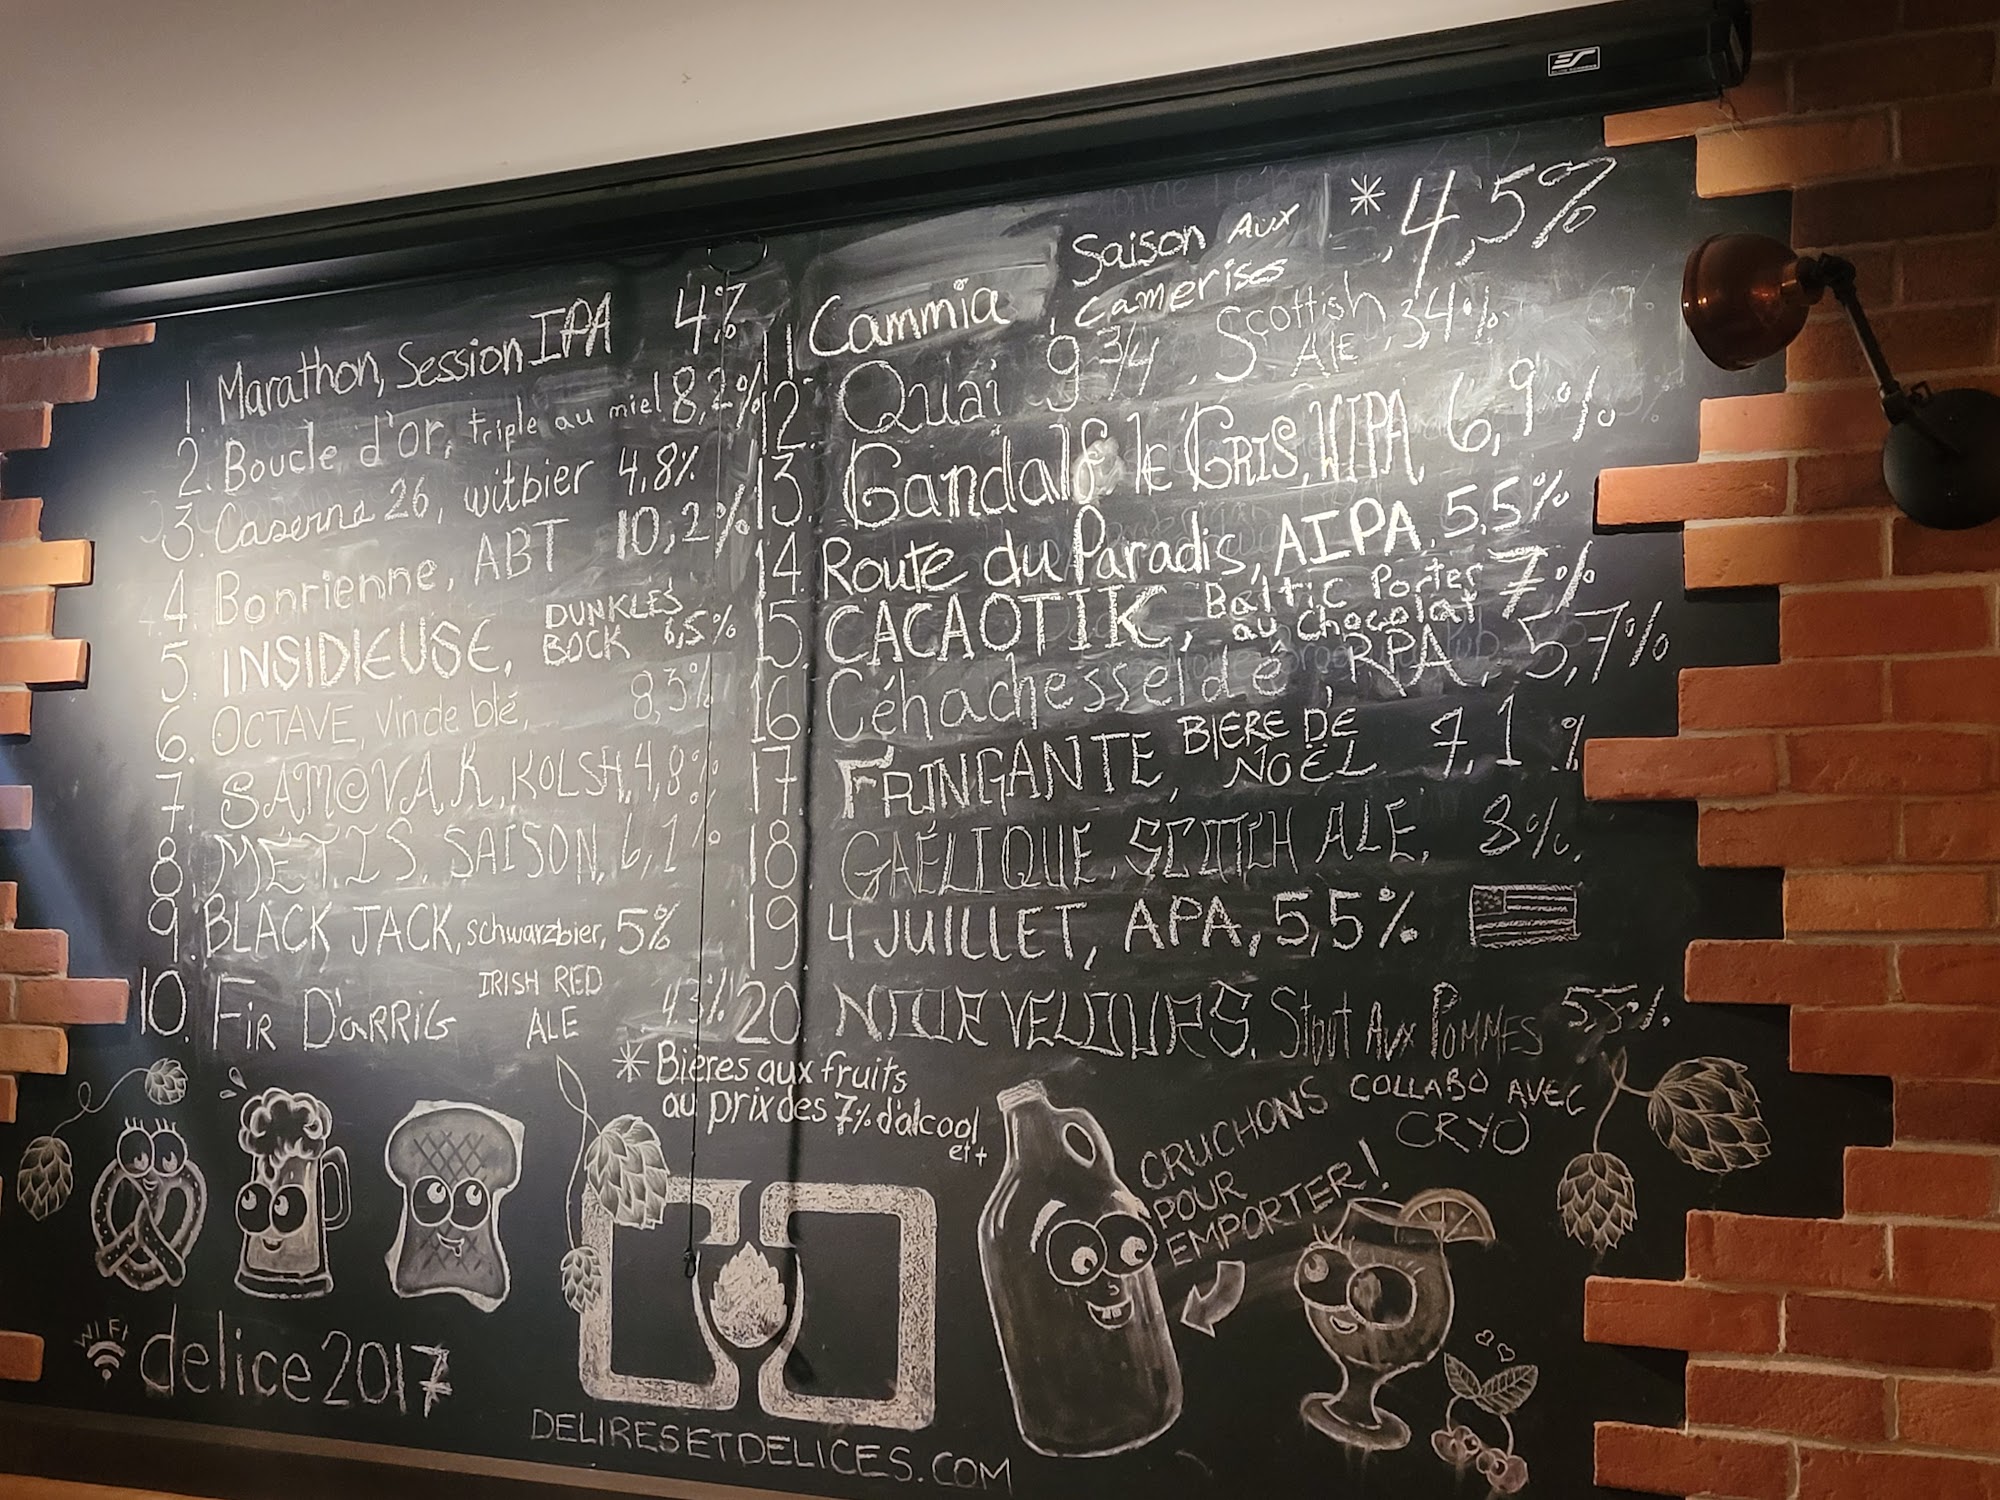 1. Marathon, Session IPA 4%
2. Boucle d'or, triple au miel 8,2%
3. Caserne 26, witbier 4,8%
4. Bonrienne, ABT 10,2%
5. INSIDIEUSE, DUNKLES BOCK 6,5%
6. OCTAVE, Vin de blé, 8,3%
7. SAMOVAR, KOLSH, 4,8%
8. MÉTIS, SAISON, 6,1%
9. BLACK JACK, schwarzbier, 5%
10. FIR D'ARRIG IRISH RED ALE 4,3%
11 Cammia, Saison Aux Camerises * 4,5%
12. Quai 9 3/4, Scottish Ale, 3,4%
13. Gandalf le GRIS, WIPA, 6,9%
14. Route du Paradis, AIPA, 5,5%
15. CACAOTIK, Baltic Porter au chocolat 7%
16. Céhachesseldé, RPA, 5,7%
17. FRINGANTE, BIERE DE NOËL 7,1%
18. GAÉLIQUE, SCOTCH ALE, 8%.
19. 4 JUILLET, APA, 5,5%
20. NOUR VELOURS, Stout Aux POMMES 5,5%
* Bières aux fruits
au prix des 7% d'alcool
et +
CRUCHONS
POUR
EMPORTER!
COLLABO AVEC
CRYO
WIFI
delice2017
DELIRESETDELICES.COM